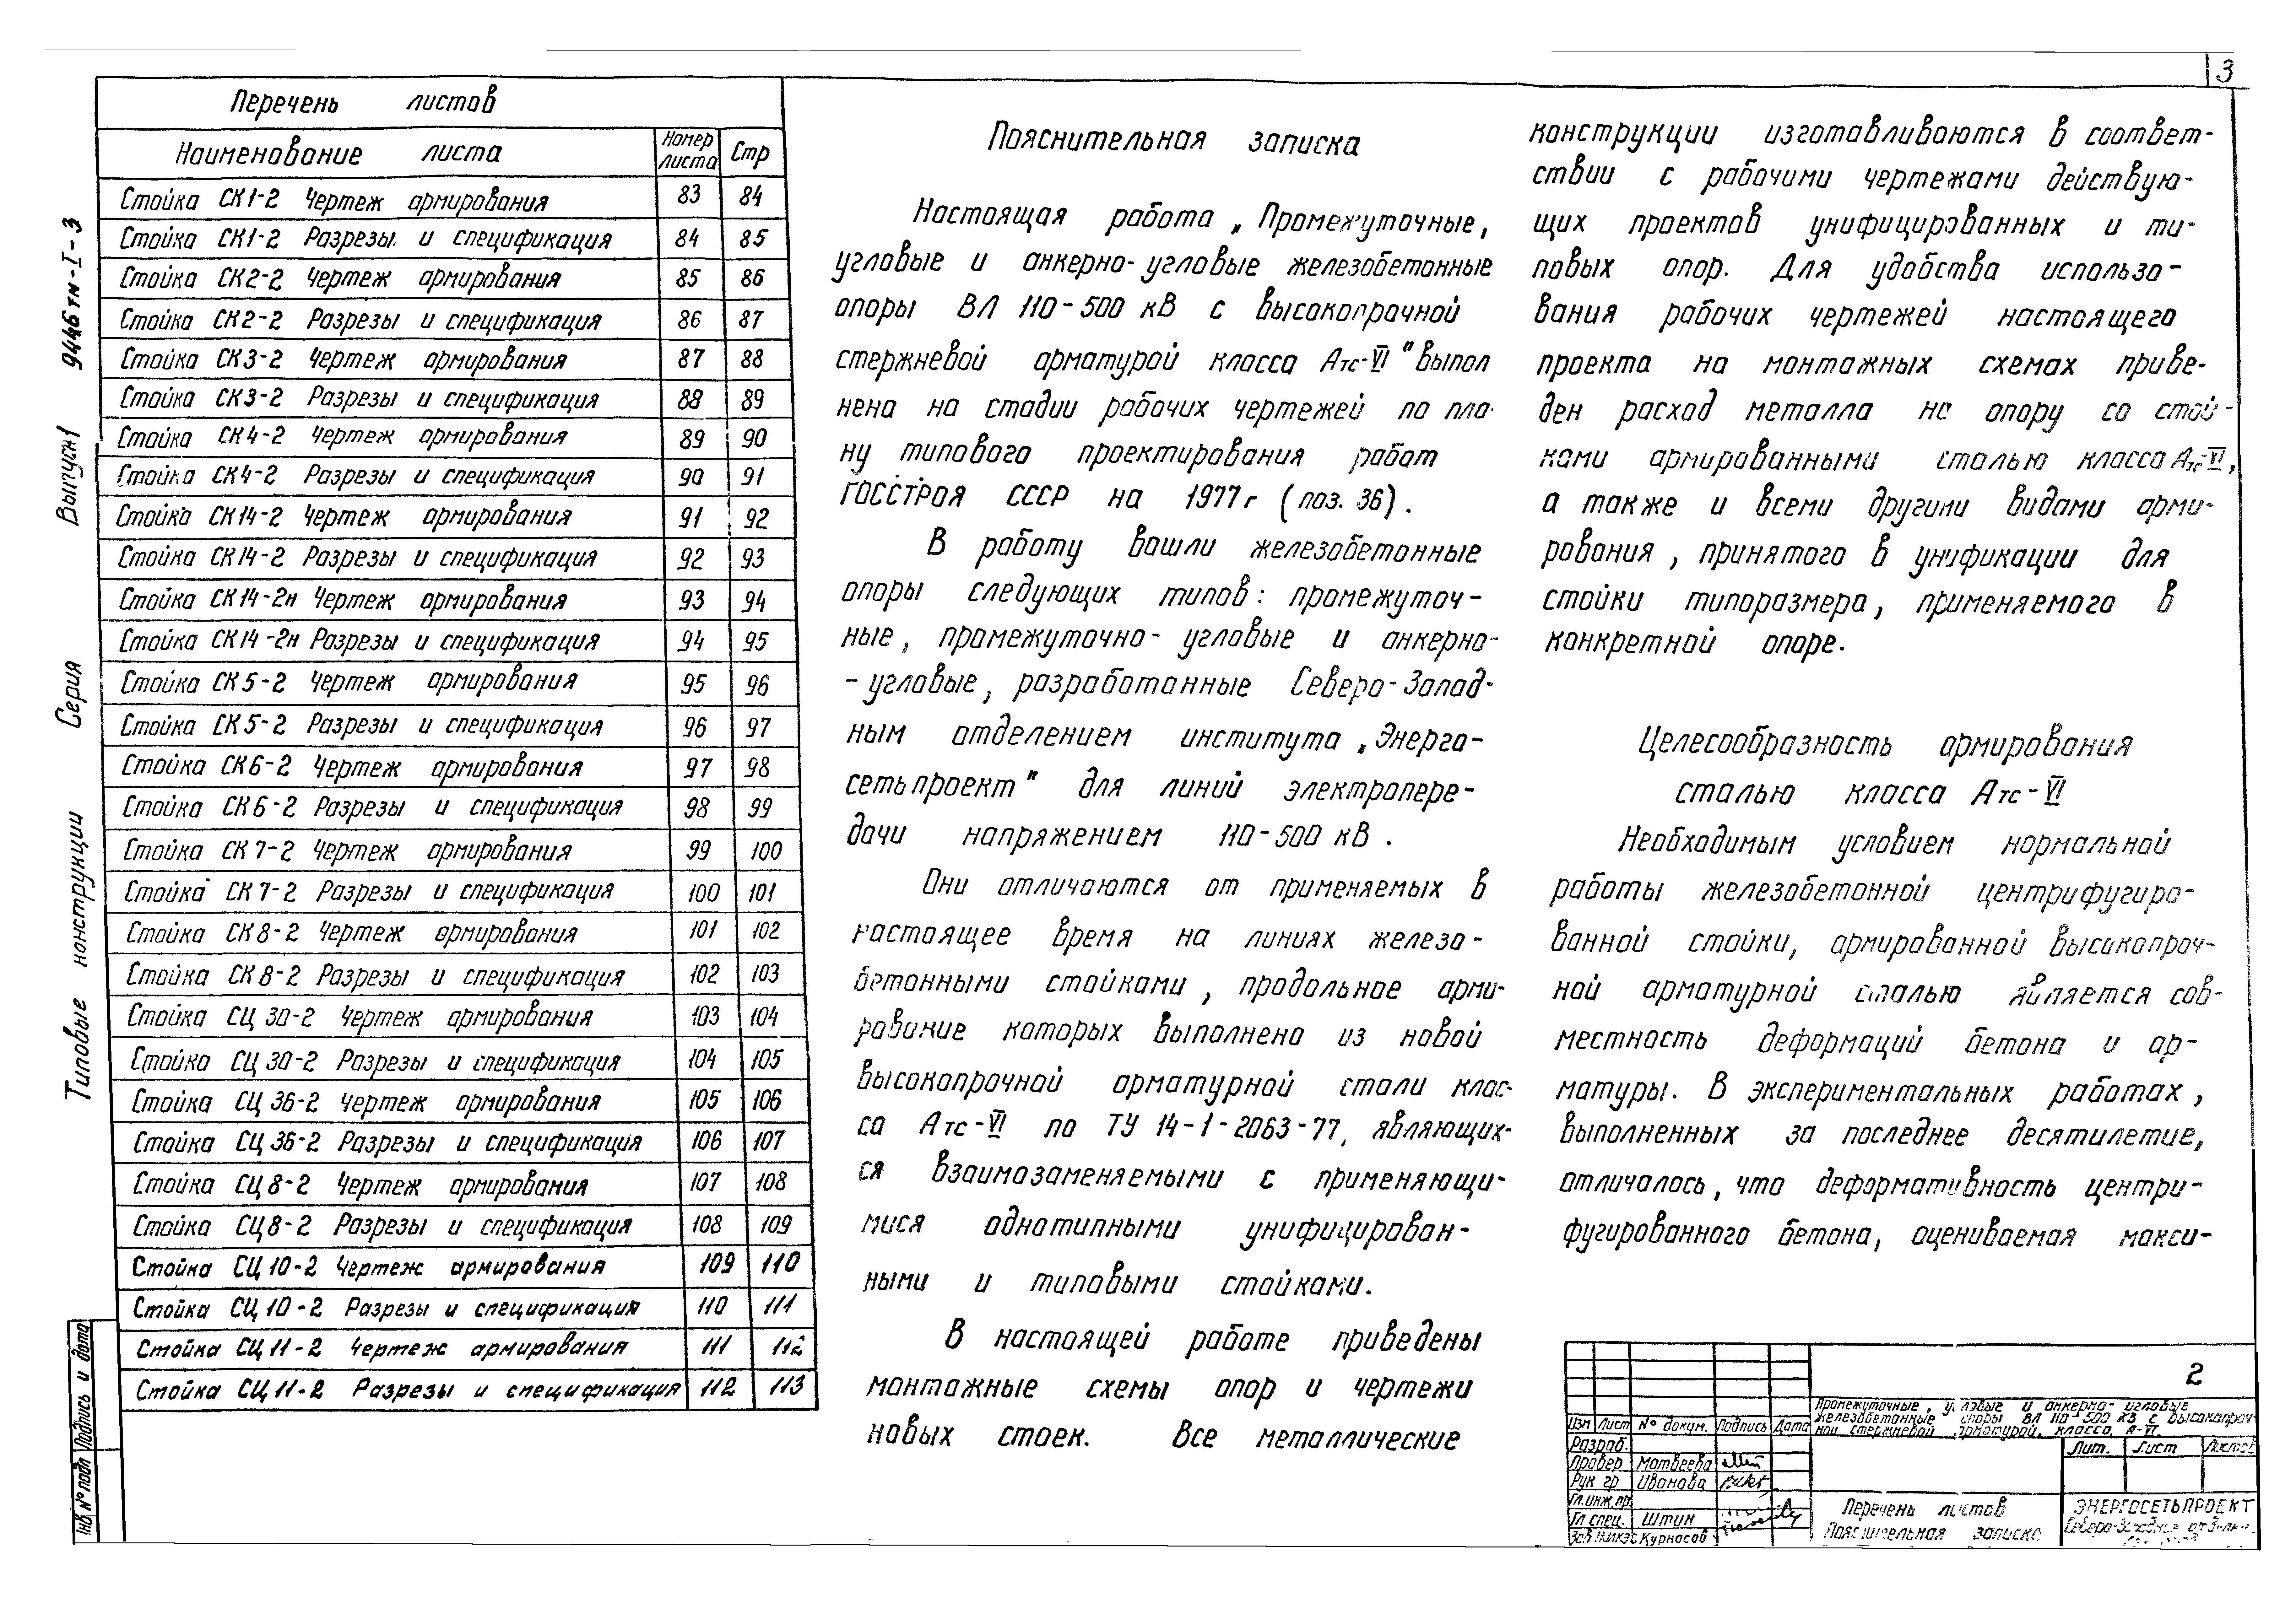 3
Перечень листов
Наименование листа Номер листа Стр
Стойка СК1-2 Чертеж армирования 83 84
Стойка СК1-2 Разрезы и спецификация 84 85
Стойка СК2-2 Чертеж армирования 85 86
Стойка СК2-2 Разрезы и спецификация 86 87
Стойка СК3-2 Чертеж армирования 87 88
Стойка СК3-2 Разрезы и спецификация 88 89
Стойка СК4-2 Чертеж армирования 89 90
Стойка СК4-2 Разрезы и спецификация 90 91
Стойка СК14-2 Чертеж армирования 91 92
Стойка СК14-2 Разрезы и спецификация 92 93
Стойка СК14-2н Чертеж армирования 93 94
Стойка СК14-2н Разрезы и спецификация 94 95
Стойка СК5-2 Чертеж армирования 95 96
Стойка СК5-2 Разрезы и спецификация 96 97
Стойка СК6-2 Чертеж армирования 97 98
Стойка СК6-2 Разрезы и спецификация 98 99
Стойка СК7-2 Чертеж армирования 99 100
Стойка СК7-2 Разрезы и спецификация 100 101
Стойка СК8-2 Чертеж армирования 101 102
Стойка СК8-2 Разрезы и спецификация 102 103
Стойка СЦ30-2 Чертеж армирования 103 104
Стойка СЦ30-2 Разрезы и спецификация 104 105
Стойка СЦ36-2 Чертеж армирования 105 106
Стойка СЦ36-2 Разрезы и спецификация 106 107
Стойка СЦ8-2 Чертеж армирования 107 108
Стойка СЦ8-2 Разрезы и спецификация 108 109
Стойка СЦ10-2 Чертеж армирования 109 110
Стойка СЦ10-2 Разрезы и спецификация 110 111
Стойка СЦ11-2 Чертеж армирования 111 112
Стойка СЦ11-2 Разрезы и спецификация 112 113
Типовые конструкции Серия Выпуск 1 9446тм-I-3
Инв № подл Подпись и дата
Пояснительная записка
Настоящая работа „Промежуточные,
угловые и анкерно-угловые железобетонные
опоры ВЛ 110-500 кВ с высокопрочной
стержневой арматурой класса Атс-VI" выпол
нена на стадии рабочих чертежей по пла-
ну типового проектирования работ
ГОССТРОЯ СССР на 1977г (поз. 36).
В работу вошли железобетонные
опоры следующих типов: промежуточ-
ные, промежуточно-угловые и анкерно-
-угловые, разработанные Северо-Запад-
ным отделением института „Энерго-
сетьпроект" для линий электропере-
дачи напряжением 110-500 кВ.
Они отличаются от применяемых в
настоящее время на линиях железо-
бетонными стойками, продольное арми-
рование которых выполнено из новой
высокопрочной арматурной стали клас-
са Атс-VI по ТУ 14-1-2063-77, являющих-
ся взаимозаменяемыми с применяющи-
мися однотипными унифицирован-
ными и типовыми стойками.
В настоящей работе приведены
монтажные схемы опор и чертежи
новых стоек. Все металлические
конструкции изготавливаются в соответ-
ствии с рабочими чертежами действую-
щих проектов унифицированных и ти-
повых опор. Для удобства использо-
вания рабочих чертежей настоящего
проекта на монтажных схемах приве-
ден расход металла на опору со стой-
ками армированными сталью класса Атс-VI,
а также и всеми другими видами арми-
рования, принятого в унификации для
стойки типоразмера, применяемого в
конкретной опоре.
Целесообразность армирования
сталью класса Атс-VI
Необходимым условием нормальной
работы железобетонной центрифугиро-
ванной стойки, армированной высокопроч-
ной арматурной сталью является сов-
местность деформаций бетона и ар-
матуры. В экспериментальных работах,
выполненных за последнее десятилетие,
отличалось, что деформативность центри-
фугированного бетона, оцениваемая макси-
2
Промежуточные, угловые и анкерно-угловые
железобетонные опоры ВЛ 110-500 кВ с высокопроч-
ной стержневой арматурой, класса А-VI.
Изм Лист № докум. Подпись Дата
Разраб.
Провер Матвеева
Рук гр Иванова
Гл.инж.пр.
Гл спец. Штин
Курносов
Лит. Лист Листов
Перечень листов
Пояснительная записка
ЭНЕРГОСЕТЬПРОЕКТ
Северо-Западное